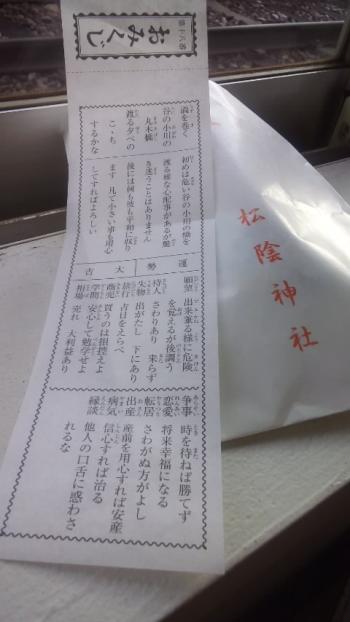 第十八番
おみくじ
渦を巻く
谷の小川の
丸木橋
渡る夕べの
こゝち
するかな
初めは危い谷の小川の橋を
渡る様な心配事があるが驚
き迷うことはありません
後には何も彼も平和に収り
ます 凡て小さい事も用心
してすればよろしい
運勢 大吉
願望 出来兼る様に危険
を覚えるが後調う
待人 さわりあり 来らず
失物 出がたし 下にあり
旅行 吉日をえらべ
商売 買うのは損控えよ
学問 安心して勉学せよ
相場 売れ 大利益あり
争事 時を待ねば勝てず
恋愛 将来幸福になる
転居 さわがぬ方がよし
出産 産前を用心すれば安産
病気 信心すれば治る
縁談 他人の口舌に惑わさ
れるな
松陰神社